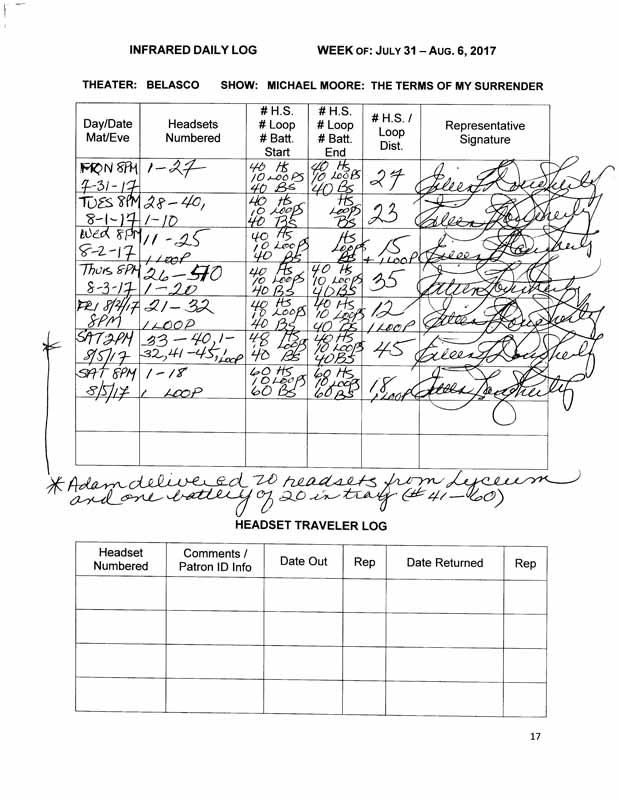 INFRARED DAILY LOG WEEK OF: JULY 31 – AUG. 6, 2017
THEATER: BELASCO SHOW: MICHAEL MOORE: THE TERMS OF MY SURRENDER
Day/Date Mat/Eve | Headsets Numbered | # H.S. # Loop # Batt. Start | # H.S. # Loop # Batt. End | # H.S. / Loop Dist. | Representative Signature
MON 8PM 7-31-17 | 1-27 | 40 HS 10 LOOPS 40 BS | 40 HS 10 LOOPS 40 BS | 27 | Eileen Dougherty
TUES 8PM 8-1-17 | 28-40, 1-10 | 40 HS 10 LOOPS 40 BS | HS LOOPS BS | 23 | Eileen Dougherty
Wed 8PM 8-2-17 | 11-25 1 LOOP | 40 HS 10 LOOPS 40 BS | HS LOOPS BS | 15 + 1 LOOP | Eileen Dougherty
Thurs 8PM 8-3-17 | 26-40 1-20 | 40 HS 10 LOOPS 40 BS | 40 HS 10 LOOPS 40 BS | 35 | Eileen Dougherty
FRI 8/4/17 8PM | 21-32 1 LOOP | 40 HS 10 LOOPS 40 BS | 40 HS 10 LOOPS 40 BS | 12 1 LOOP | Eileen Dougherty
SAT 2PM 8/5/17 | 33-40, 1-32, 41-45, 1 LOOP | HS LOOPS 40 BS | 40 HS 10 LOOPS 40 BS | 45 | Eileen Dougherty
SAT 8PM 8/5/17 | 1-18 1 LOOP | 60 HS 10 LOOPS 60 BS | 60 HS 10 LOOPS 60 BS | 18 1 LOOP | Eileen Dougherty
* Adam delivered 20 headsets from Lyceum
and one battery of 20 in tray (#41-60)
HEADSET TRAVELER LOG
Headset Numbered | Comments / Patron ID Info | Date Out | Rep | Date Returned | Rep
17